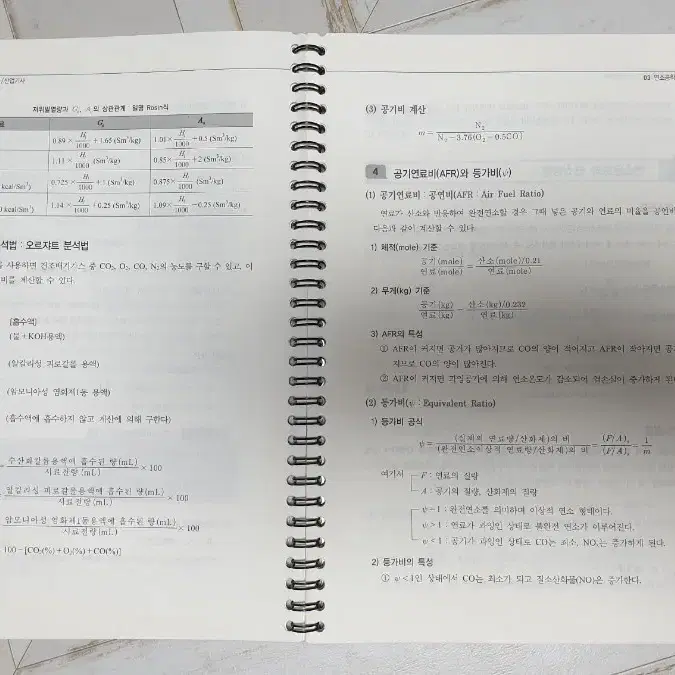 /산업기사
저위발열량과 G₀, A₀의 상관관계 : 일명 Rosin식
G₀ A₀
0.89 × Hl/1000 + 1.65 (Sm³/kg) 1.01 × Hl/1000 + 0.5 (Sm³/kg)
1.11 × Hl/1000 (Sm³/kg) 0.85 × Hl/1000 + 2 (Sm³/kg)
kcal/Sm³) 0.725 × Hl/1000 + 1 (Sm³/kg)
kcal/Sm³) 1.14 × Hl/1000 + 0.25 (Sm³/kg) 1.09 × Hl/1000 - 0.25 (Sm³/kg)
석법 : 오르자트 분석법
를 사용하면 건조배기가스 중 CO₂, O₂, CO, N₂의 농도를 구할 수 있고, 이
비를 계산할 수 있다.
(흡수액)
(물+KOH용액)
(알칼리성 피로갈롤 용액)
(암모니아성 염화제1동 용액)
(흡수액에 흡수하지 않고 계산에 의해 구한다)
= 수산화칼륨용액에 흡수된 양(mL)/시료전량(mL) × 100
알칼리성 피로갈롤용액에 흡수된 양(mL)/시료전량(mL) × 100
암모니아성 염화제1동용액에 흡수된 양(mL)/시료전량(mL) × 100
100 - [CO₂(%) + O₂(%) + CO(%)]
03 연소공학
(3) 공기비 계산
m = N₂/N₂ - 3.76(O₂ - 0.5CO)
4 공기연료비(AFR)와 등가비(ψ)
(1) 공기연료비 : 공연비(AFR : Air Fuel Ratio)
연료가 산소와 반응하여 완전연소할 경우 그때 넣은 공기와 연료의 비율을 공연비
다음과 같이 계산할 수 있다.
1) 체적(mole) 기준
공기(male)/연료(mole) = 산소(mole)/0.21/연료(mole)
2) 무게(kg) 기준
공기(kg)/연료(kg) = 산소(kg)/0.232/연료(kg)
3) AFR의 특성
① AFR이 커지면 공기가 많아지므로 CO의 양이 적어지고 AFR이 작아지면 공기
지므로 CO의 양이 많아진다.
② AFR이 커지면 과잉공기에 의해 연소온도가 감소되어 열손실이 증가하게 된다
(2) 등가비(ψ : Equivalent Ratio)
1) 등가비 공식
ψ = (실제의 연료량/산화제)의 비/(완전연소이상적 연료량/산화제)의 비 = (F/A)ₐ/(F/A)ₛ = 1/m
여기서 F : 연료의 질량
A : 공기의 질량, 산화제의 질량
ψ=1 : 완전연소를 의미하며 이상적 연소 형태이다.
ψ>1 : 연료가 과잉인 상태로 불완전 연소가 이루어진다.
ψ<1 : 공기가 과잉인 상태로 CO는 최소, NOₓ는 증가하게 된다.
2) 등가비의 특성
① ψ<1인 상태에서 CO는 최소가 되고 질소산화물(NO)은 증가한다.